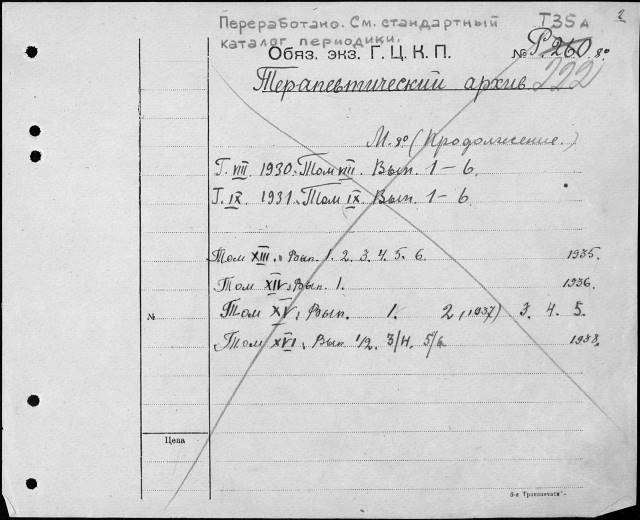 Переработано. См. стандартный Т35А 2
каталог периодики.
Обяз. экз. Г. Ц. К. П. № Р.260 8°
222
Терапевтический архив
М. 8° (Продолжение.)
Г. VIII. 1930. Том VIII. Вып. 1-6.
Г. IX. 1931. Том IX. Вып. 1-6.
Том XIII. Вып. 1. 2. 3. 4. 5. 6. 1935.
Том XIV. Вып. 1. 1936.
№ Том XV. Вып. 1. 2 (1937) 3. 4. 5.
Том XVI. Вып 1/2. 3/4. 5/6. 1938.
Цена